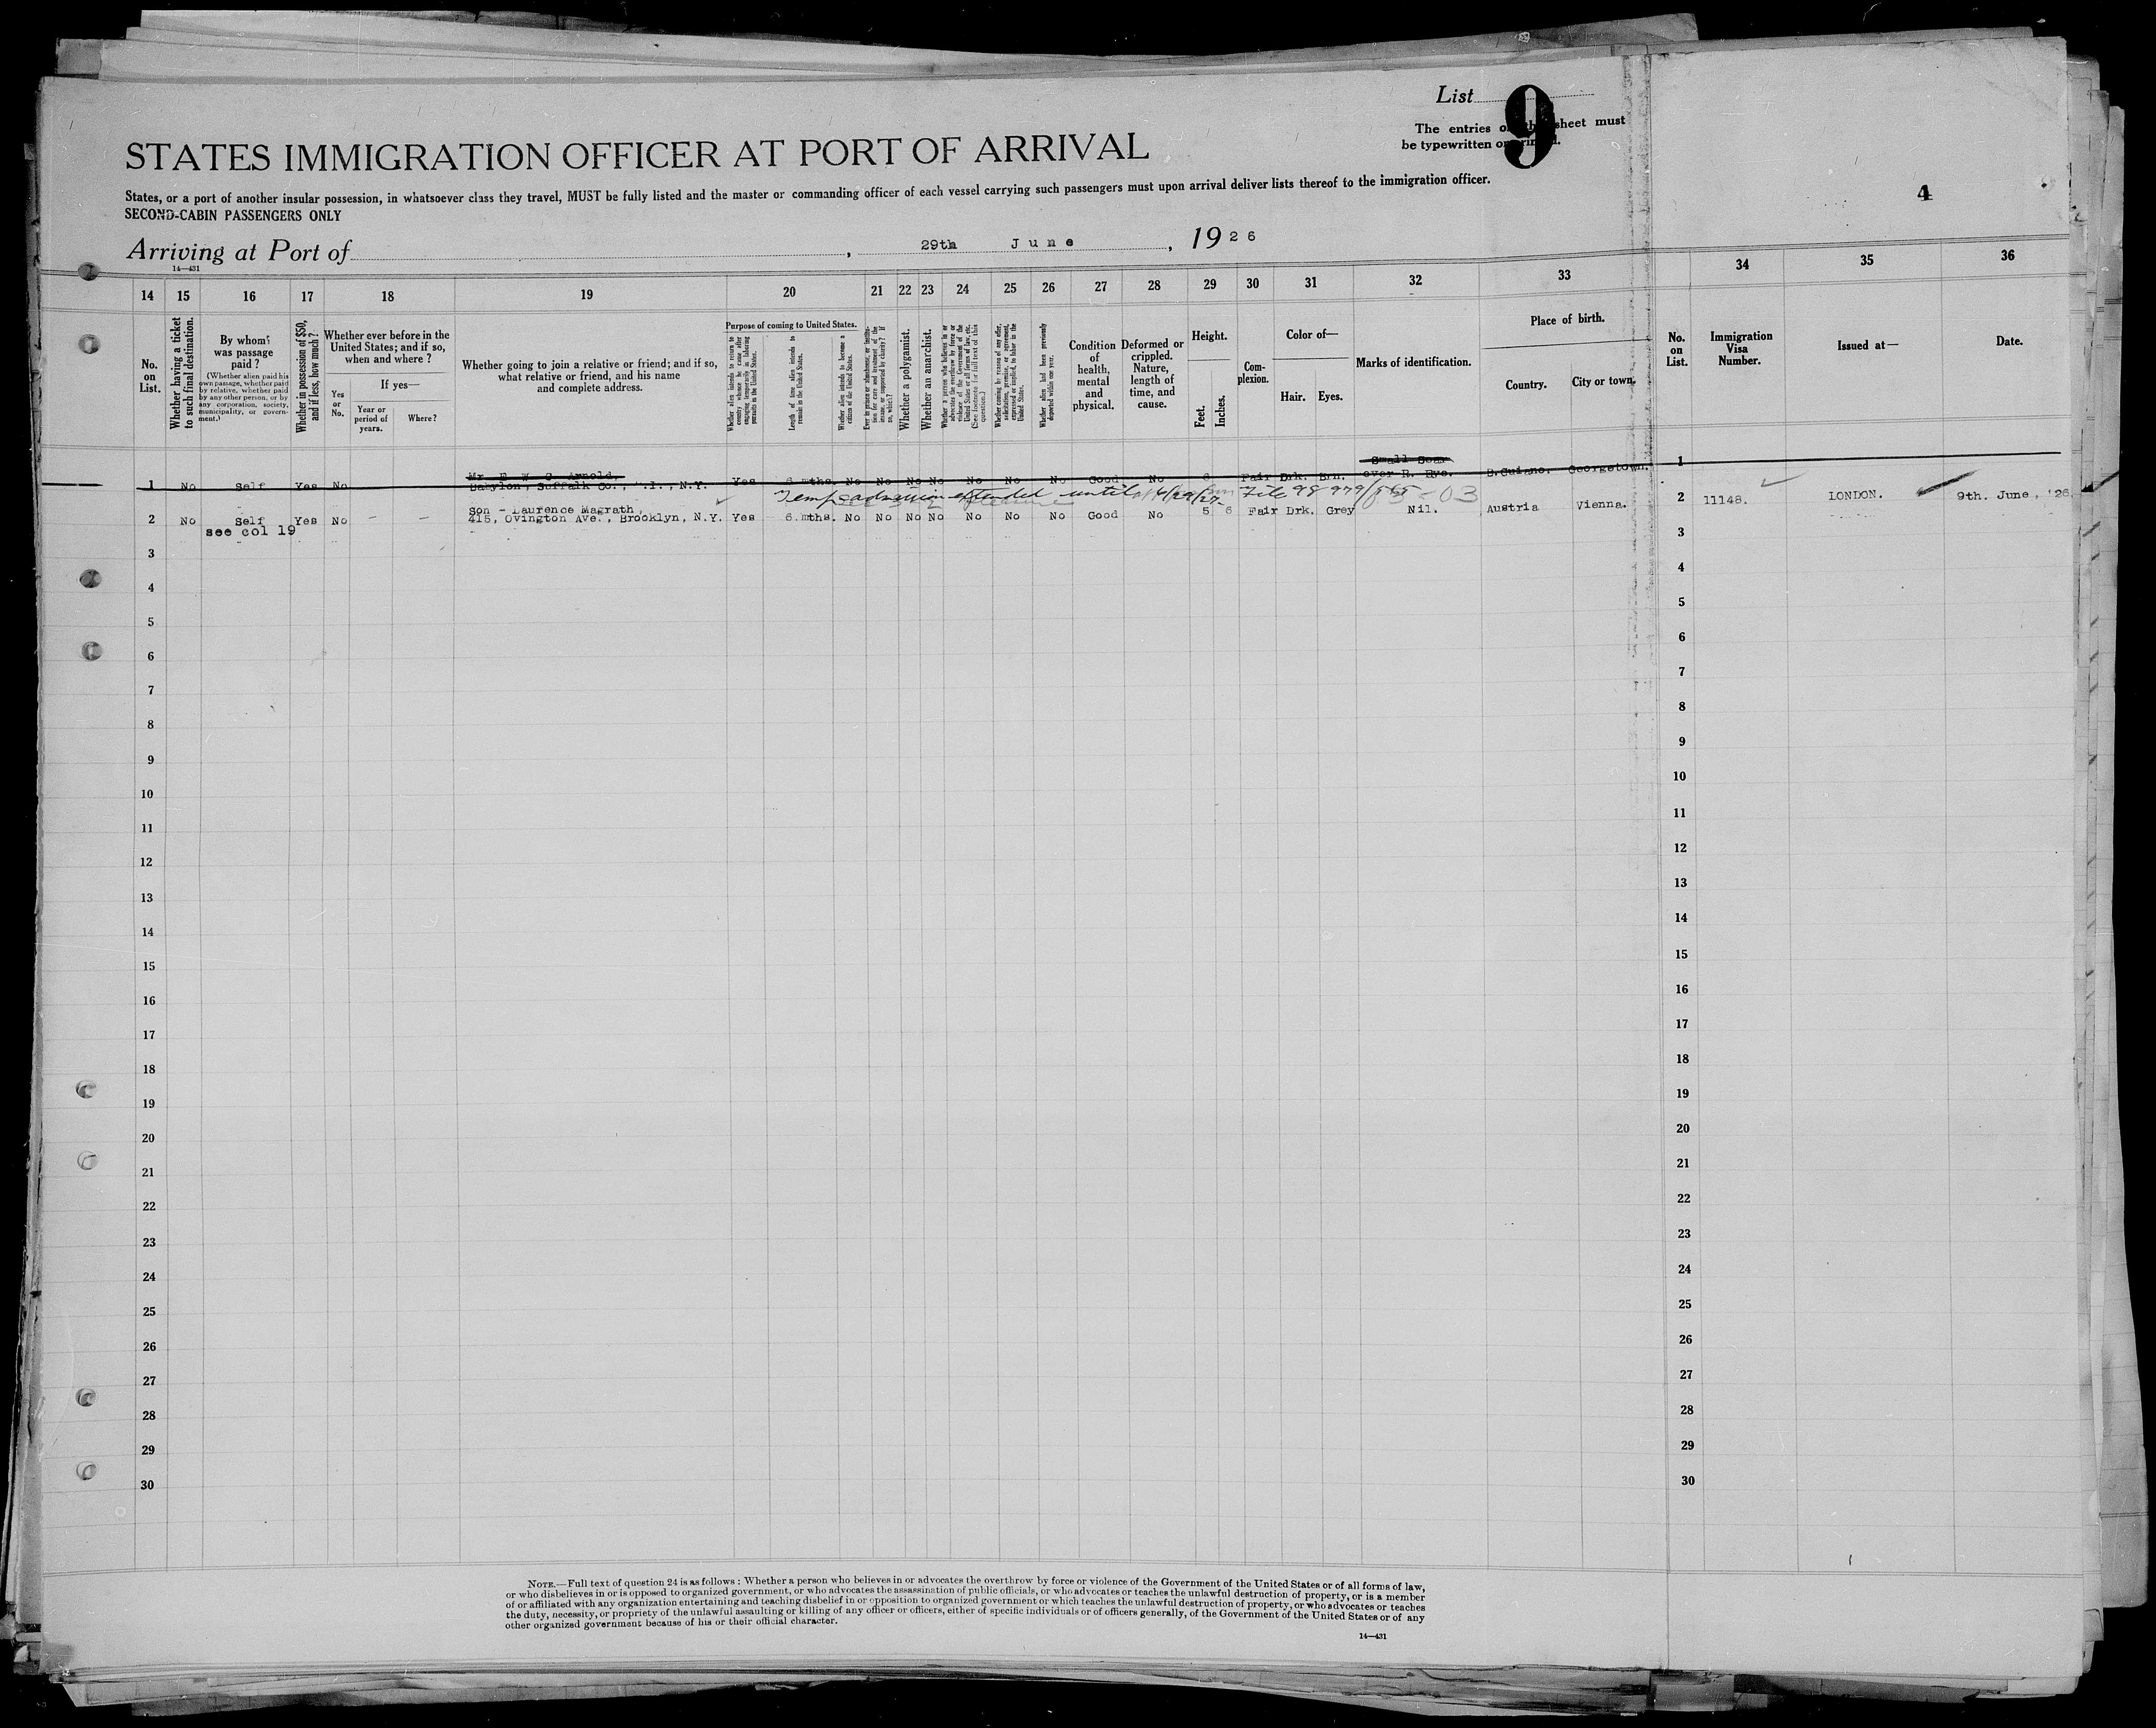 List 9
The entries on this sheet must
be typewritten or printed.
STATES IMMIGRATION OFFICER AT PORT OF ARRIVAL
4
States, or a port of another insular possession, in whatsoever class they travel, MUST be fully listed and the master or commanding officer of each vessel carrying such passengers must upon arrival deliver lists thereof to the immigration officer.
SECOND-CABIN PASSENGERS ONLY
Arriving at Port of , 29th June , 19 2 6
14—431
14 15 16 17 18 19 20 21 22 23 24 25 26 27 28 29 30 31 32 33 34 35 36
No. on List.
Whether having a ticket to such final destination.
By whom was passage paid?
(Whether alien paid his own passage, whether paid by relative, whether paid by any other person, or by any corporation, society, municipality, or government.)
Whether in possession of $50, and if less, how much?
Whether ever before in the United States; and if so, when and where?
Yes or No.
If yes—
Year or period of years.
Where?
Whether going to join a relative or friend; and if so, what relative or friend, and his name and complete address.
Purpose of coming to United States.
Whether alien intends to return to country whence he came after engaging temporarily in laboring pursuits in the United States.
Length of time alien intends to remain in the United States.
Whether alien intends to become a citizen of the United States.
Ever in prison or almshouse, or institution for care and treatment of the insane, or supported by charity? If so, which?
Whether a polygamist.
Whether an anarchist.
Whether a person who believes in or advocates the overthrow by force or violence of the Government of the United States or all forms of law, etc. (See footnote for full text of this question.)
Whether coming by reason of any offer, solicitation, promise, or agreement, expressed or implied, to labor in the United States.
Whether alien had been previously deported within one year.
Condition of health, mental and physical.
Deformed or crippled. Nature, length of time, and cause.
Height.
Feet. Inches.
Complexion.
Color of—
Hair. Eyes.
Marks of identification.
Place of birth.
Country. City or town.
No. on List.
Immigration Visa Number.
Issued at—
Date.
Mr. E W C Arnold. Small Scar
1 No Self Yes No Babylon, Suffalk Co., L.I., N.Y. Yes 6 mths. No No No No No No No Good No 6 Fair Drk. Brn. over R. Eye. B.Guiano. Georgetown. 1
Temp admission extended until 4/29/27 File 98 979/ - 03
Son - Laurence Magrath,
2 No Self Yes No - - 415, Ovington Ave., Brooklyn, N.Y. Yes 6 mths. No No No No No No No Good No 5 6 Fair Drk. Grey Nil. Austria Vienna. 2 11148. LONDON. 9th. June, '26.
see col 19
3 3
4 4
5 5
6 6
7 7
8 8
9 9
10 10
11 11
12 12
13 13
14 14
15 15
16 16
17 17
18 18
19 19
20 20
21 21
22 22
23 23
24 24
25 25
26 26
27 27
28 28
29 29
30 30
NOTE.—Full text of question 24 is as follows: Whether a person who believes in or advocates the overthrow by force or violence of the Government of the United States or of all forms of law,
or who disbelieves in or is opposed to organized government, or who advocates the assassination of public officials, or who advocates or teaches the unlawful destruction of property, or is a member
of or affiliated with any organization entertaining and teaching disbelief in or opposition to organized government or which teaches the unlawful destruction of property, or who advocates or teaches
the duty, necessity, or propriety of the unlawful assaulting or killing of any officer or officers, either of specific individuals or of officers generally, of the Government of the United States or of any
other organized government because of his or their official character.
14—431